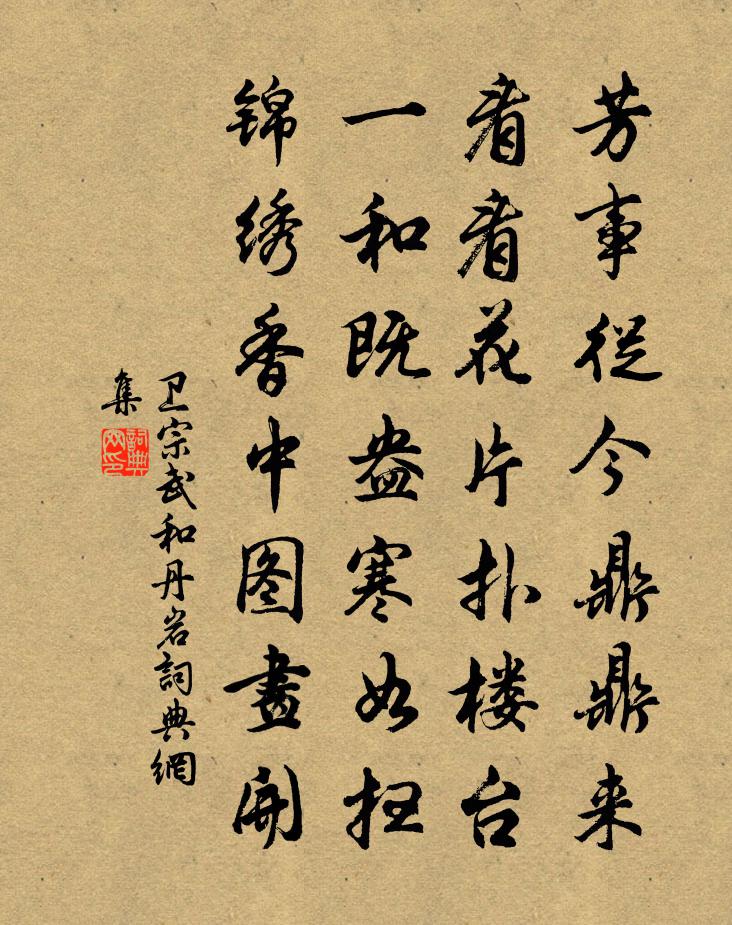 芳事從今鼎鼎来
看看花片扑楼台
一和既盎寒如扭
锦绣香中图畫開
卫宗武和丹岩詞典網
集
詞典网印